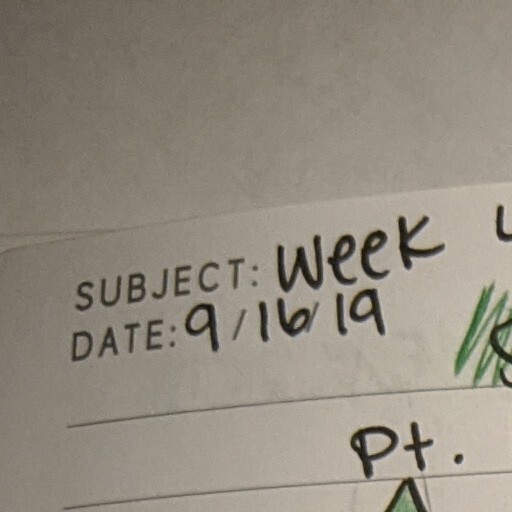 SUBJECT: Week
DATE: 9/16/19
Pt.